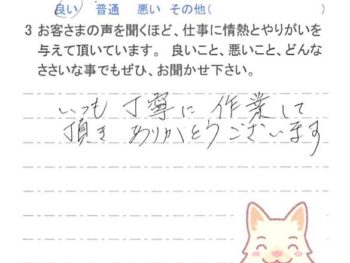 良い 普通 悪い その他( )
3 お客さまの声を聞くほど、仕事に情熱とやりがいを
与えて頂いています。 良いこと、悪いこと、どんな
ささいな事でもぜひ、お聞かせ下さい。
いつも 丁寧に 作業して
頂き ありがとうございます